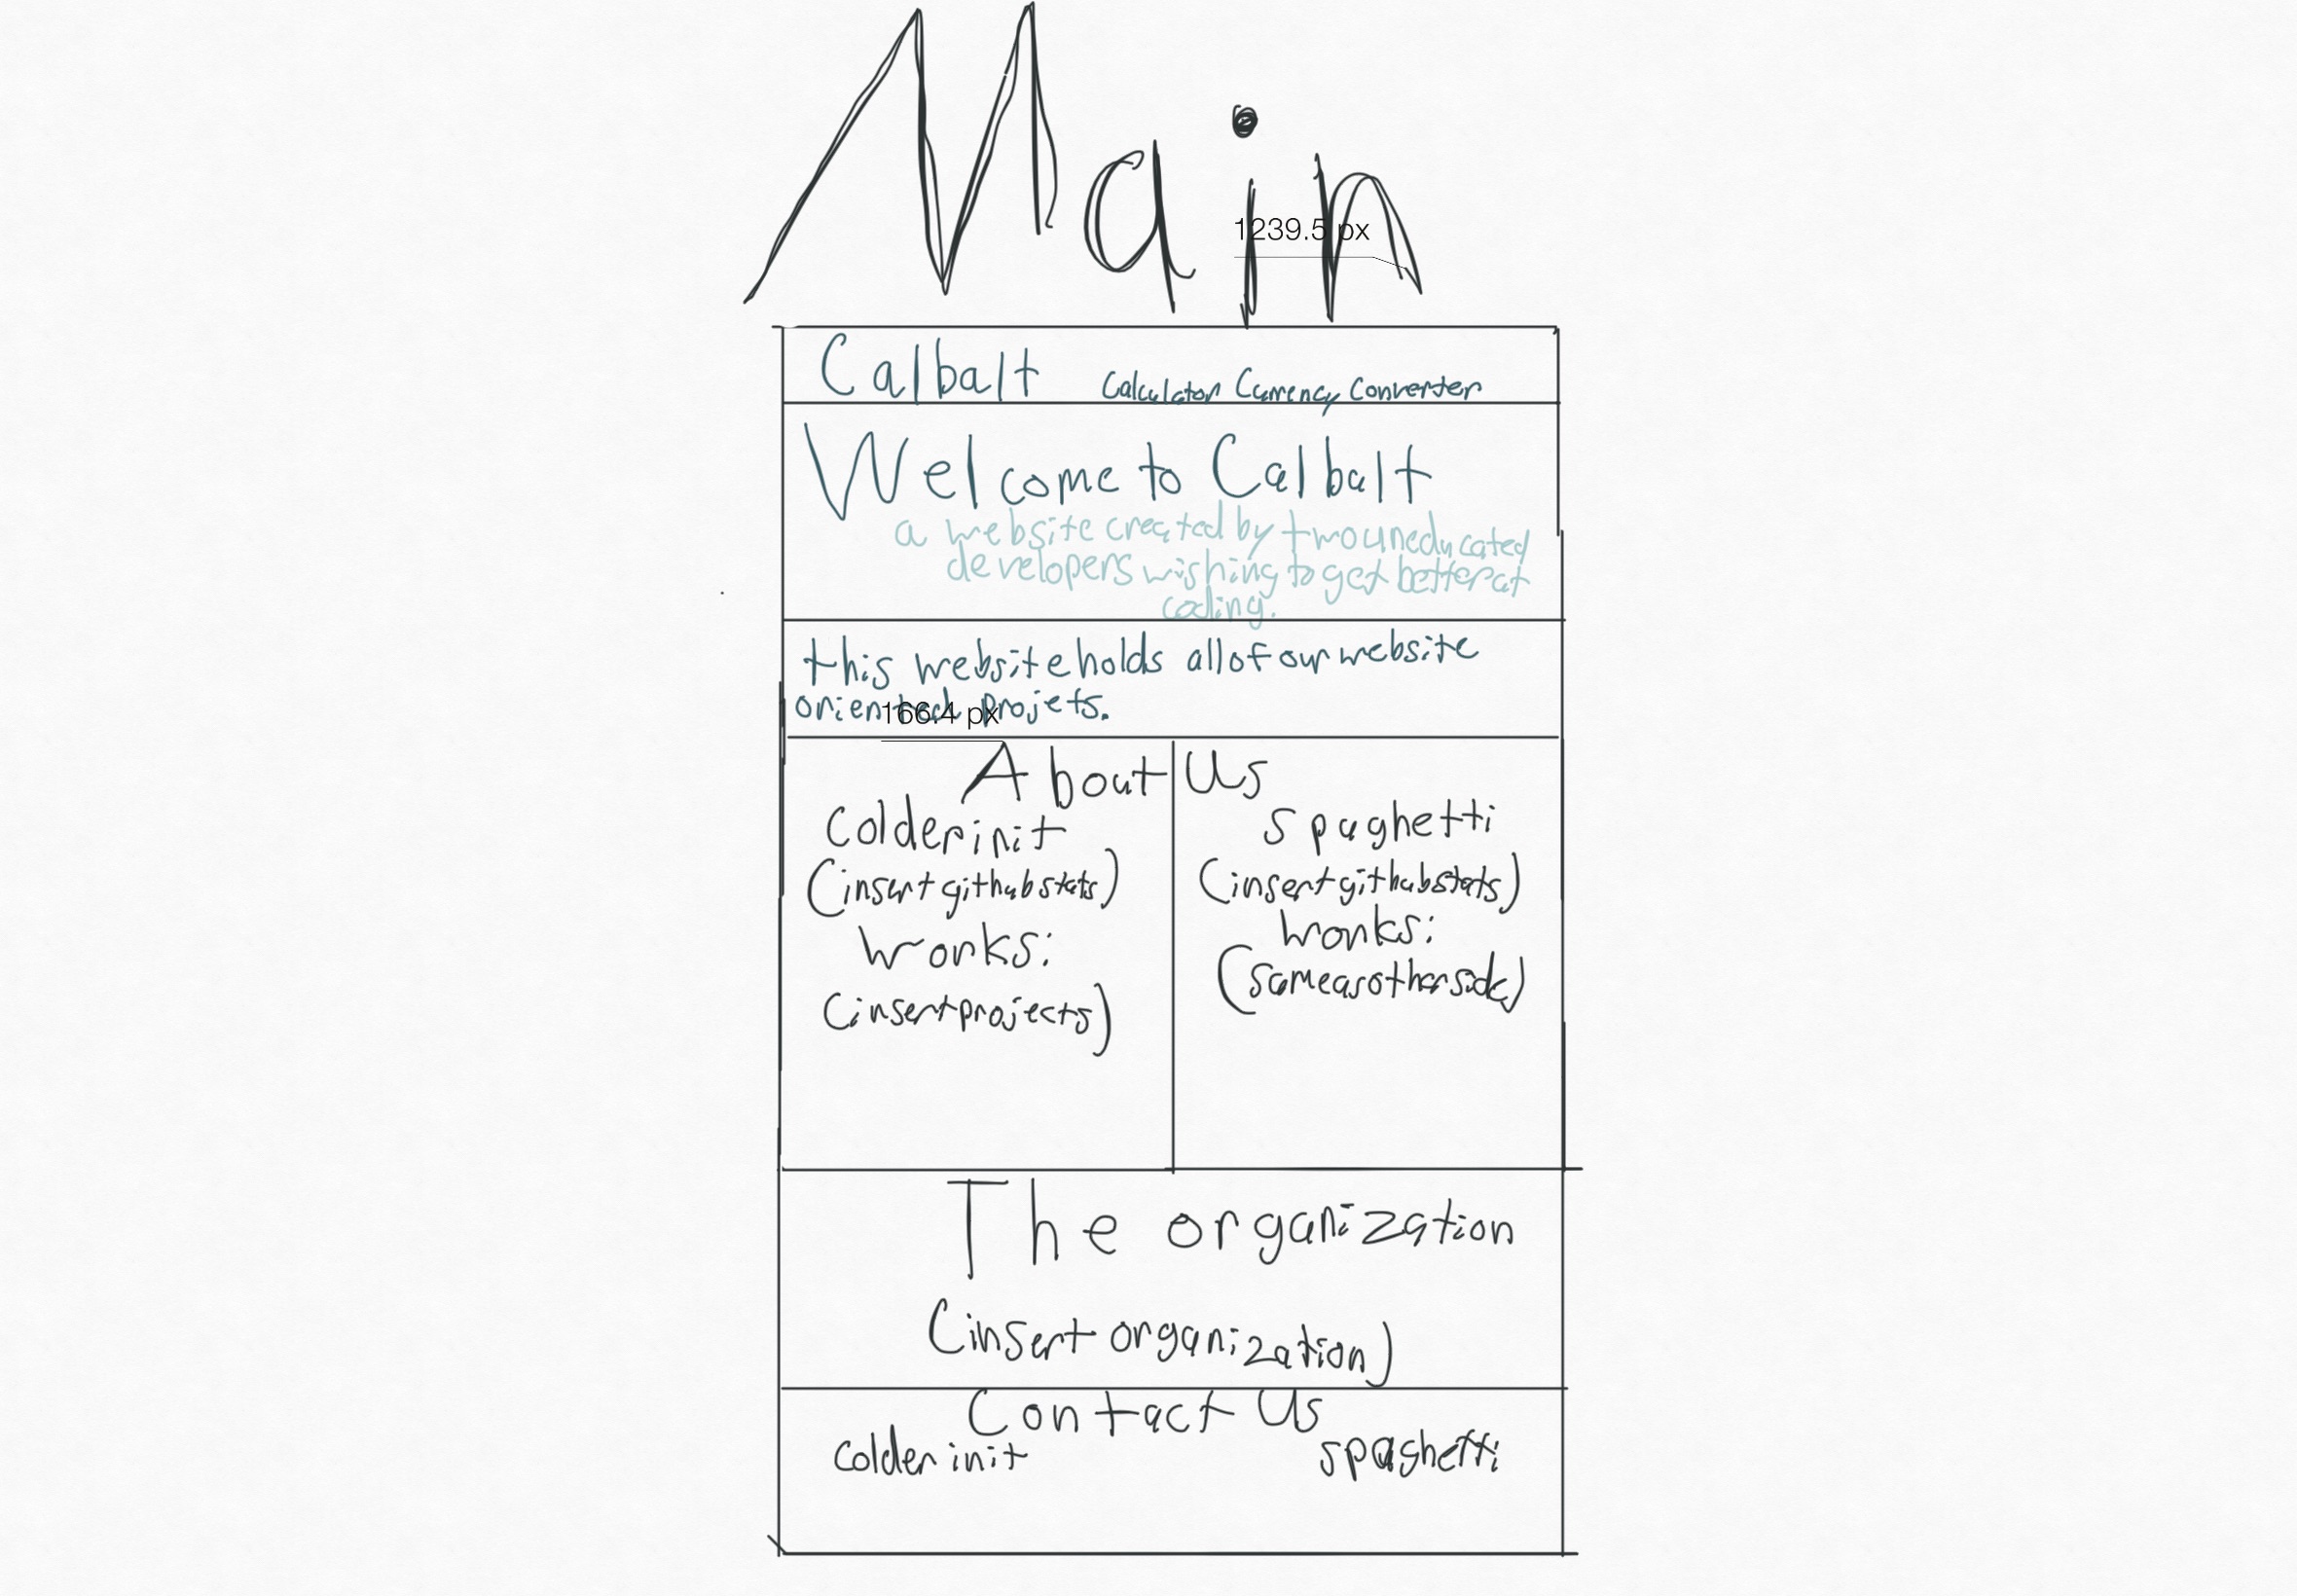 Main
1239.5 px
Calbalt Calculator Currency Converter
Welcome to Calbalt
a website created by two uneducated
developers wishing to get better at
coding.
this website holds all of our website
oriented projets.
166.4 px
About Us
Colderinit
(insert github stats)
works:
(insert projects)
spaghetti
(insert github stats)
works:
(same as other side)
The organization
(insert organization)
Contact Us
Colderinit
spaghetti